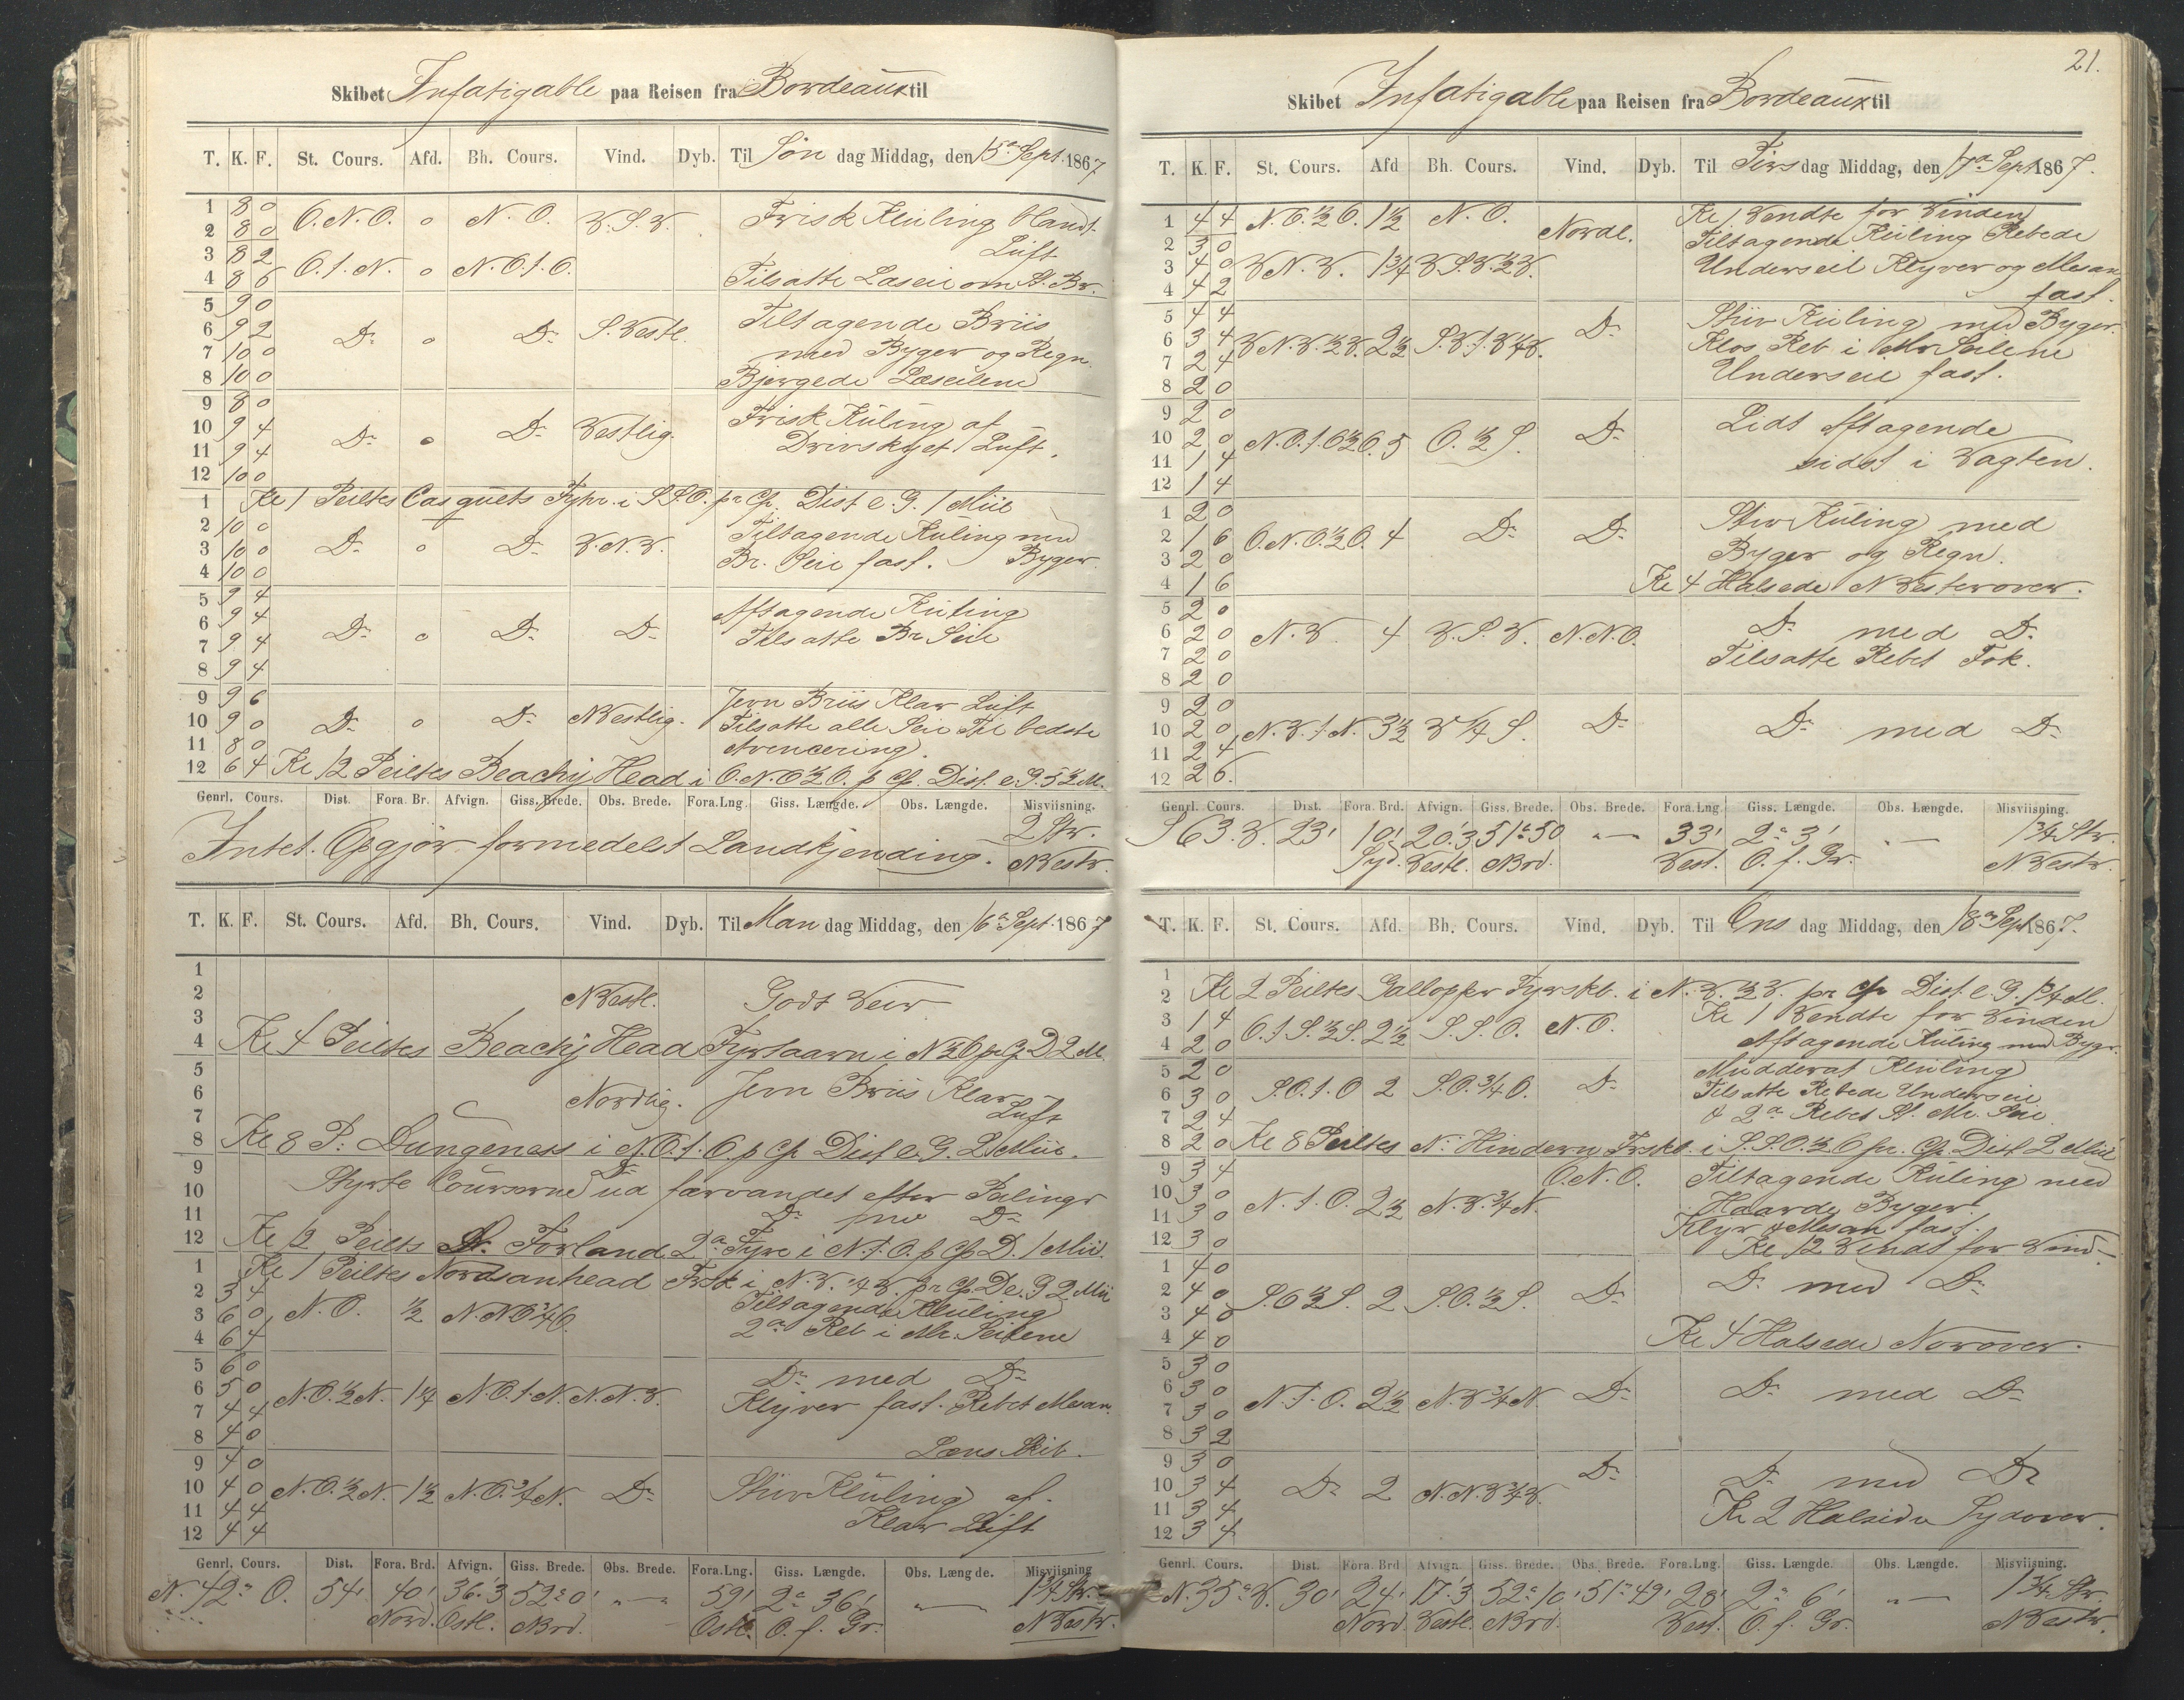 Skibet Infatigable paa Reisen fra Bordeaux til
T. K. F. St. Cours. Afd. Bh. Cours. Vind. Dyb. Til Søn dag Middag, den 15de Sept. 1867
1 8 0
2 8 0 O.N.O. 0 N.O. V.S.V. Frisk Kuling blandt
3 8 2 Luft
4 8 6 O.t.N. 0 N.O.t.O. Tilsatte Læseil om St. Br.
5 9 0
6 9 2 Do 0 Do S.Vestl. Tiltagende Briis
7 10 0 med Byger og Regn.
8 10 0 Bjergede Læseilene
9 8 0
10 9 4 Do 0 Do Vestlig. Frisk Kuling af
11 9 4 Drivskyet Luft.
12 10 0
1 Kl 1 Peiltes Casquets Fyhr. i S.S.O. pr Cp. Dist e. G. 1 Miil
2 10 0 Tiltagende Kuling med
3 10 0 Do 0 Do V.N.V. Byger.
4 10 0 Br. Seil fast.
5 9 4
6 9 4 Aftagende Kuling
7 9 4 Do 0 Do Do Tilsatte Br Seil
8 9 4
9 9 6 Jevn Briis Klar Luft
10 9 0 Do 0 Do NVestlig. Tilsatte alle Seil Til bedste
11 8 0 Avencering.
12 6 4 Kl 12 Peiltes Beachy Head i O.N.O½O. p Cp. Dist. e. G. 5½ M.
Genrl. Cours. Dist. Fora. Br. Afvign. Giss. Brede. Obs. Brede. Fora.Lng. Giss. Længde. Obs. Længde. Misviisning.
Intet. Opgjør formedelst Landkjending. 2 Str.
NVestr.
T. K. F. St. Cours. Afd. Bh. Cours. Vind. Dyb. Til Man dag Middag, den 16de Sept. 1867
1
2 NVestl. Godt Veir
3
4 Kl 4 Peiltes Beachy Head Fyrtaarn i N½O pr Cp D 2 M
5
6 Nordlig. Jevn Briis Klar
7 Luft
8 Kl 8 P. Dungeness i N.O.t.O. p Cp Dist e. G. 2 Miil.
9 Do
10 Styrte Courserne ud farvandet efter Peilinger
11 Do med Do
12 Kl 12 Peiltes S. Forland 2de Fyre i N.t.O. p Cp D. 1 Miil.
1 Kl 1 Peiltes Nordsanhead Frsk i N.V.¼V. pr Cp D e. G 2 Mil
2 3 4 Tiltagende Kuling
3 6 0 N.O. ½ N.NO¾O.
4 6 4 2de Reb i Mr. Seilene
5 6 0
6 5 0 N.O.½N. 1¼ N.O.t.N. N.N.V. Do med Do
7 4 4 Klyver fast. Rebet Mesan.
8 4 0 Læns Skib.
9 4 0
10 4 0 N.O.½N. 1½ N.O.¾N. Do Stiv Kuling af
11 4 4 Klar Luft
12 4 4
Genrl. Cours. Dist. Fora. Brd. Afvign. Giss. Brede. Obs. Brede. Fora.Lng. Giss. Længde. Obs. Længde. Misviisning
N. 42° O. 54' 40' 36.'3 52° 0' " — " 59' 2° 36' " — 1¾ Str.
Nord. Ostl. NBrd. Ostl. O. f. Gr. NVestr.
21.
Skibet Infatigable paa Reisen fra Bordeaux til
T. K. F. St. Cours. Afd Bh. Cours. Vind. Dyb. Til Tirs dag Middag, den 17de Sept 1867.
1 4 4 N.O.½O. 1½ N.O. Nordl. Kl 1 Vendte for Vinden
2 3 0 Tiltagende Kuling Rebede
3 4 0 V.N.V. 1¾ V.S.V.½V. Underseil Klyver og Mesan
4 4 2 fast.
5 4 4 Stiv Kuling med Byger.
6 3 4 V.N.V.½V. 2½ S.V.t.V¼V. Do Klos Reb i Mr Seilene
7 2 4 Underseil fast.
8 2 0
9 2 0 Lidt Aftagende
10 2 0 N.O.t.O½O. 5 O.½S. Do
11 1 4 sidst i Vagten.
12 1 4
1 2 0 Stiv Kuling med
2 1 6 O.N.O.½O. 4 Do Do
3 2 0 Byger og Regn.
4 1 6 Kl 4 Halsede NVesterover.
5 2 0
6 2 0 N.V. 4 V.S.V. N.N.O. Do med Do
7 2 0 Tilsatte Rebet Fok.
8 2 0
9 2 0
10 2 0 N.V.t.N. 3½ V¼S. Do Do med Do
11 2 4
12 2 6
Genrl. Cours. Dist. Fora. Brd. Afvign. Giss. Brede. Obs. Brede. Fora.Lng Giss. Længde. Obs. Længde. Misviisning.
S 63. V. 23' 10' 20.'3 51° 50 " — 33' 2° 3' " — 1¾ Str.
Syd. Vestl. NBrd. Vest. O. f. Gr. NVestr.
T. K. F. St. Cours. Afd. Bh. Cours. Vind. Dyb. Til Ons dag Middag, den 18de Sept 1867.
1
2 Kl 2 Peiltes Gallopper Fyrskb. i N.V.½V. pr Cp Dist. e. G. 1¾ M.
3 1 4 O.t.S.½S. 2½ S.S.O. N.O. Kl 1 Vendte for Vinden
4 2 0 Aftagende Kuling med Bygr.
5 2 0 Mudderat Kuling
6 3 0 S.O.t.O 2 S.O.¾O. Do Tilsatte Rebede Underseil
7 2 4 & 2de Rebet St. Mr. Seil
8 2 0 Kl 8 Peiltes N. Hindern Frskb. i S.S.O.½O pr. Cp. Dist 2 Miil
9 3 4 O.N.O. Tiltagende Kuling med
10 3 0 N.t.O. 2½ N.V.¾N. Haarde Byger.
11 3 0 Klyv. & Mesan fast.
12 3 0 Kl 12 Vendt for Vind
1 4 0
2 4 0 S.O½S. 2 S.O.½S. Do Do med Do
3 4 0
4 4 0 Kl 4 Halsede Norover.
5 3 0
6 3 0 N.t.O. 2½ N.V.¾N Do Do med Do
7 3 0
8 3 2
9 3 0
10 3 4 Do 2 N.N.V¾V. Do Do med Do
11 3 4 Kl 2 Halsede Sydover.
12 3 4
Genrl. Cours. Dist. Fora. Brd Afvign. Giss. Brede. Obs. Brede. Fora.Lng. Giss. Længde. Obs. Længde. Misviisning.
N. 35° V. 30' 24' 17.'3 52° 10' 51° 49' 28' 2° 6' " — 1¾ Str.
Nord Vestl. NBrd. Vest. O. f. Gr. NVestr.